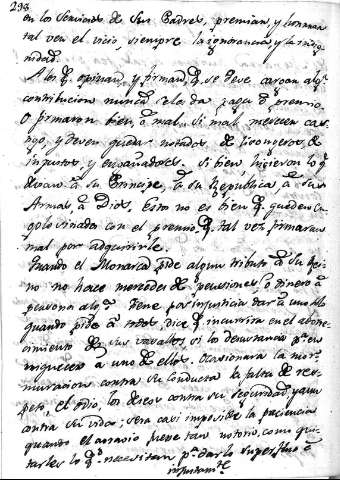 238
en los servicios de sus Padres, premian, y honran
tal vez el vicio, siempre la ignorancia, y la indig-
nidad.
A los q. opinan, y firman, q. se deve cargar alg.
contribucion nunca se les da paga o premio.
O firmaron bien, o mal. Si mal merecen cas-
tigo, y deven quedar notados, de lisongeros, de
injustos, y engañadores. Si bien, hicieron lo q.
devian a su Principe, a su Republica, a sus
Armas, a Dios. Esto no es bien q. queden
con el premio, q. tal vez firmaran
mal por adquirirle.
Quando el Monarca pide algun tributo a su Rei-
no no hace mercedes de pensiones, o dinero a
persona alg. Tiene por injusticia dar a uno lo
quando pide a todos, dice q. incurrira en el aborre-
cimiento de sus vasallos, si los desustancia p. en-
riquecer a uno de ellos. Ocasionara la mor-
muracion contra su conducta la falta de res-
peto, el odio, los deseos contra su seguridad, y aun
contra su vida; sera casi imposible la paciencia
quando el agravio fuese tan notorio, como qui-
tarles lo q. necesitan p. darlo superfluo e
injustam.te